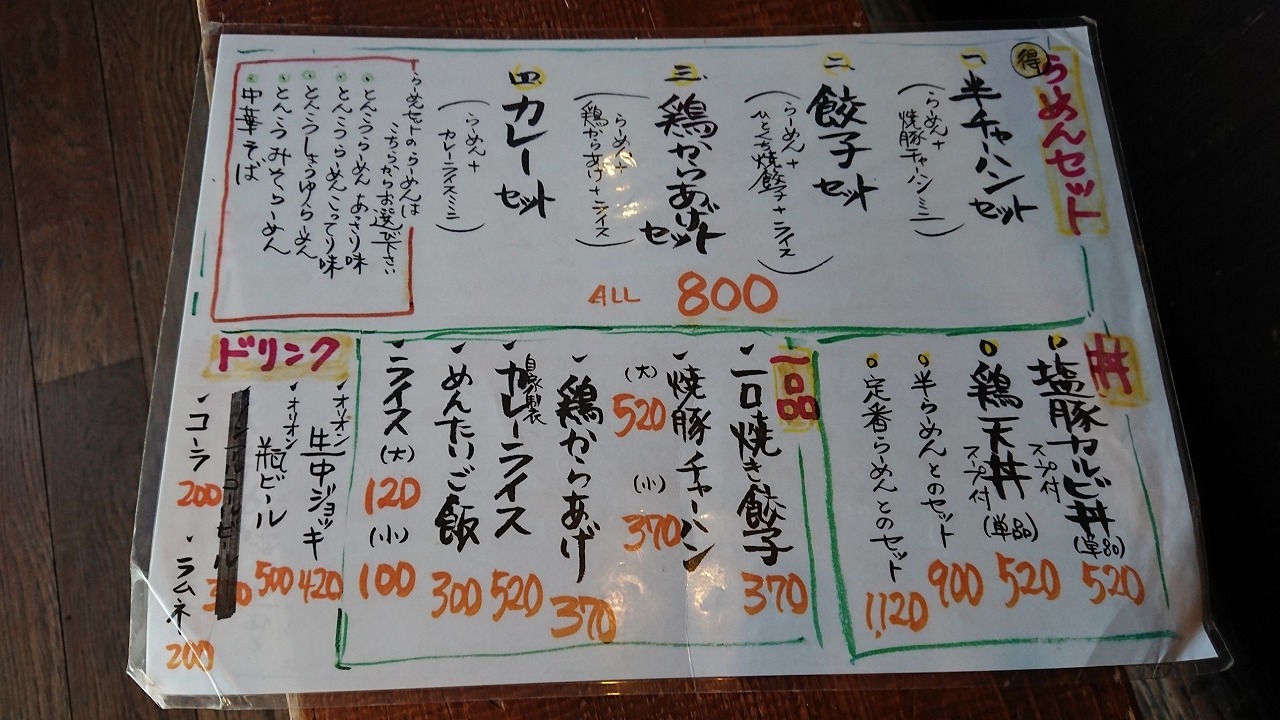 得
らーめんセット
一 半チャーハンセット
(らーめん+
焼豚チャーハンミニ)
二 餃子セット
(らーめん+
ひとくち焼餃子+ライス)
三 鶏からあげセット
(らーめん+
鶏からあげ+ライス)
四 カレーセット
(らーめん+
カレーライスミニ)
ALL 800
らー麺セットのらーめんは
こちらからお選び下さい
・とんこつらーめん あさり味
・とんこつらーめん こってり味
・とんこつしょうゆらーめん
・とんこつみそらーめん
・中華そば
丼
塩豚カルビ丼 (単品) 520
スープ付
鶏天丼 (単品) 520
スープ付
半らーめんとのセット 900
定番らーめんとのセット 1,120
一品
一口焼き餃子 370
焼豚チャーハン
(大) 520 (小) 370
鶏からあげ 370
自家製
カレーライス 520
めんたいご飯 300
ライス (大) 120 (小) 100
ドリンク
オリオン
生中ジョッキ 420
オリオン
瓶ビール 500
コーラ 200
ラムネ 200